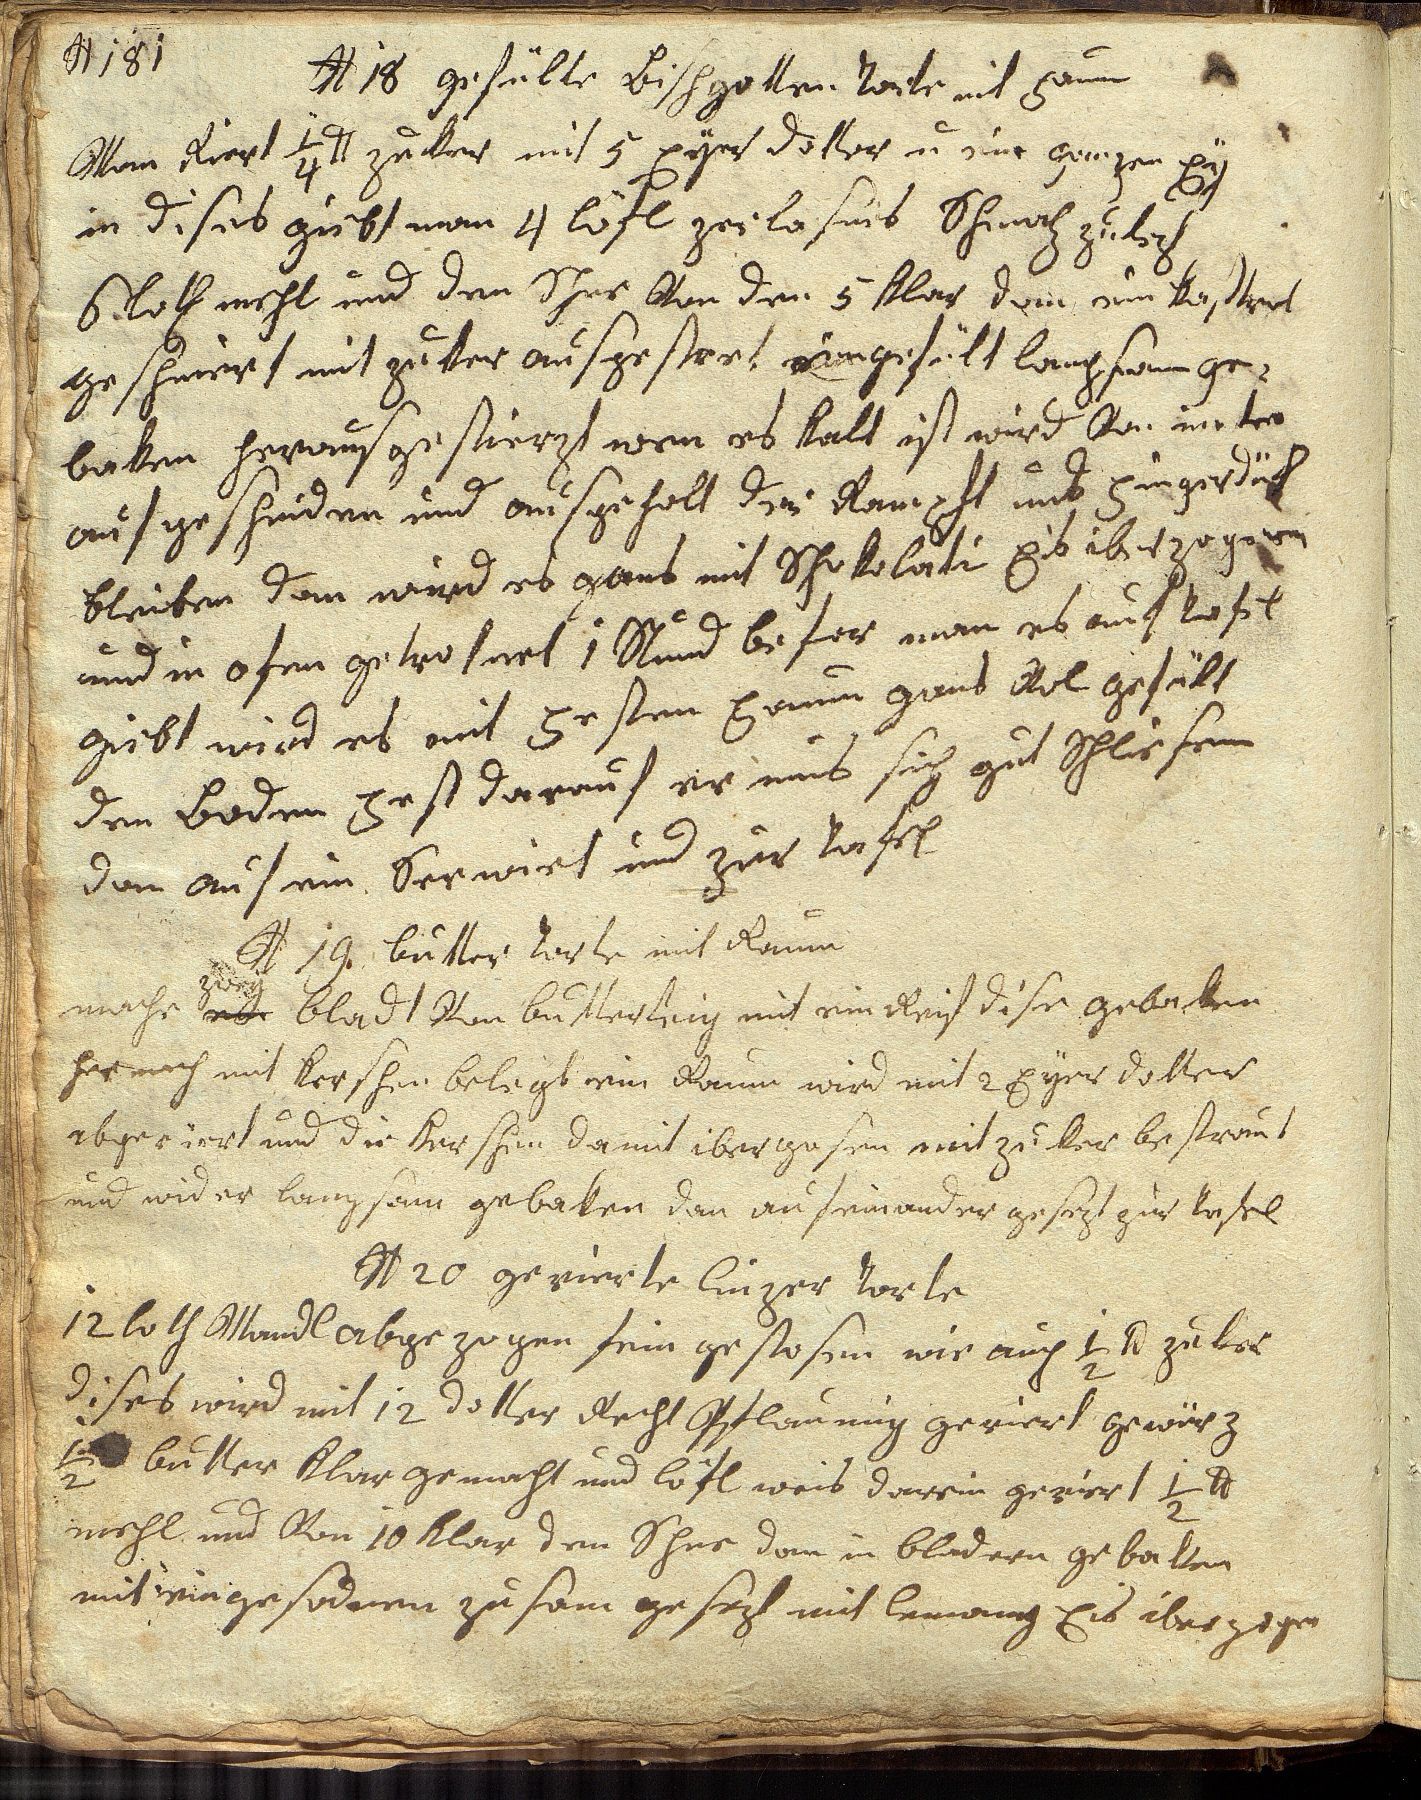 № 181
№ 18 gefülte Bischgotten Torte mit Faum
Man Riert ¼ ℔ zuker mit 5 Eÿer dotter u ein ganzen Eÿ
in dises giebt man 4 löfl zerlasnes Schmalz zulezt
6 loth mehl und den Schne Von den 5 klar dan ein kastrol
geschmiert mit zuker ausgestret eingefült langsam ge-
baken herausgestierzt wen es kalt ist wird Von unten
aufgeschniden und ausgeholt der Rampft mus Fingerdük
bleiben dan wird es ganz mit Schokolati Eis iberzogen
und in ofen getroknet 1 Stund befor man es auf Tafel
giebt wird es mit Festen Faum ganz Vol gefült
den Boden Fest darauf er mus sich gut Schliesen
dan auf ein Serwiet und zur Tafel
№ 19 butter Torte mit Raum
mache zweÿ bladt Von butterteig mit ein Reif dise gebaken
hernach mit kerschen belegt ein Raum wird mit 2 Eÿer dotter
abgeriert und die kerschen damit ibergosen mit zuker bestraut
und wider langsam gebaken dan aufeinander gesezt zur Tafel
№ 20 gerierte linzer Torte
12 loth Mandl abgezogen fein gestosen wie auch ½ ℔ zuker
dises wird mit 12 dotter Recht Pflaumig geriert gewürz
½ butter klar gemacht und löfl weis darein geriert ½ ℔
mehl und Von 10 klar den Schne dan in bladern gebaken
mit eingesodnen zusam gesezt mit lemany Eis iberzogen